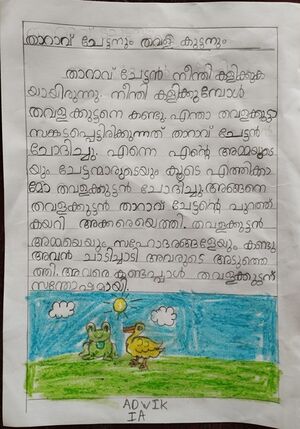 താറാവ് ചേട്ടനും തവള കുട്ടനും
താറാവ് ചേട്ടൻ നീന്തി കളിക്കുക
യായിരുന്നു. നീന്തി കളിക്കുമ്പോൾ
തവള കുട്ടനെ കണ്ടു. എന്താ തവളകുട്ടാ
സങ്കടപ്പെട്ടിരിക്കുന്നത് താറാവ് ചേട്ടൻ
ചോദിച്ചു. എന്നെ എന്റെ അമ്മയുടെ
യും ചേട്ടന്മാരുടെയും കൂടെ എത്തിക്കാ
മോ തവളകുട്ടൻ ചോദിച്ചു. അങ്ങനെ
തവളകുട്ടൻ താറാവ് ചേട്ടന്റെ പുറത്ത്
കയറി അക്കരെയെത്തി. തവളകുട്ടൻ
അമ്മയെയും സഹോദരങ്ങളേയും കണ്ടു
അവൻ ചാടിച്ചാടി അവരുടെ അടുത്തെ
ത്തി. അവരെ കണ്ടപ്പോൾ തവളകുട്ടന്
സന്തോഷമായി.
ADWIK
IA